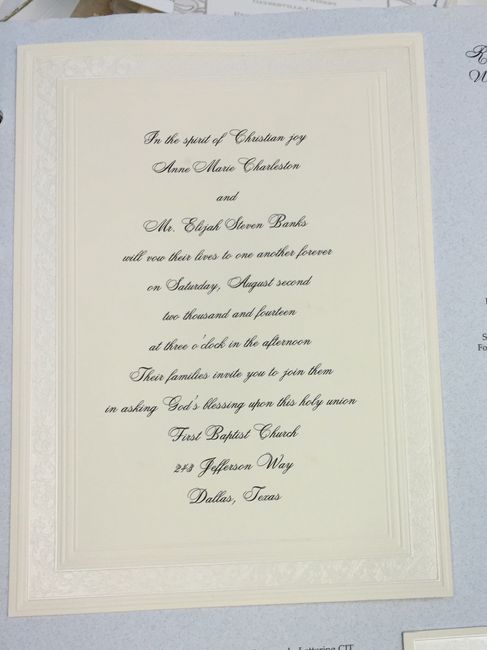 In the spirit of Christian joy
Anne Marie Charleston
and
Mr. Elijah Steven Banks
will vow their lives to one another forever
on Saturday, August second
two thousand and fourteen
at three o'clock in the afternoon
Their families invite you to join them
in asking God's blessing upon this holy union
First Baptist Church
243 Jefferson Way
Dallas, Texas
Lettering CIT